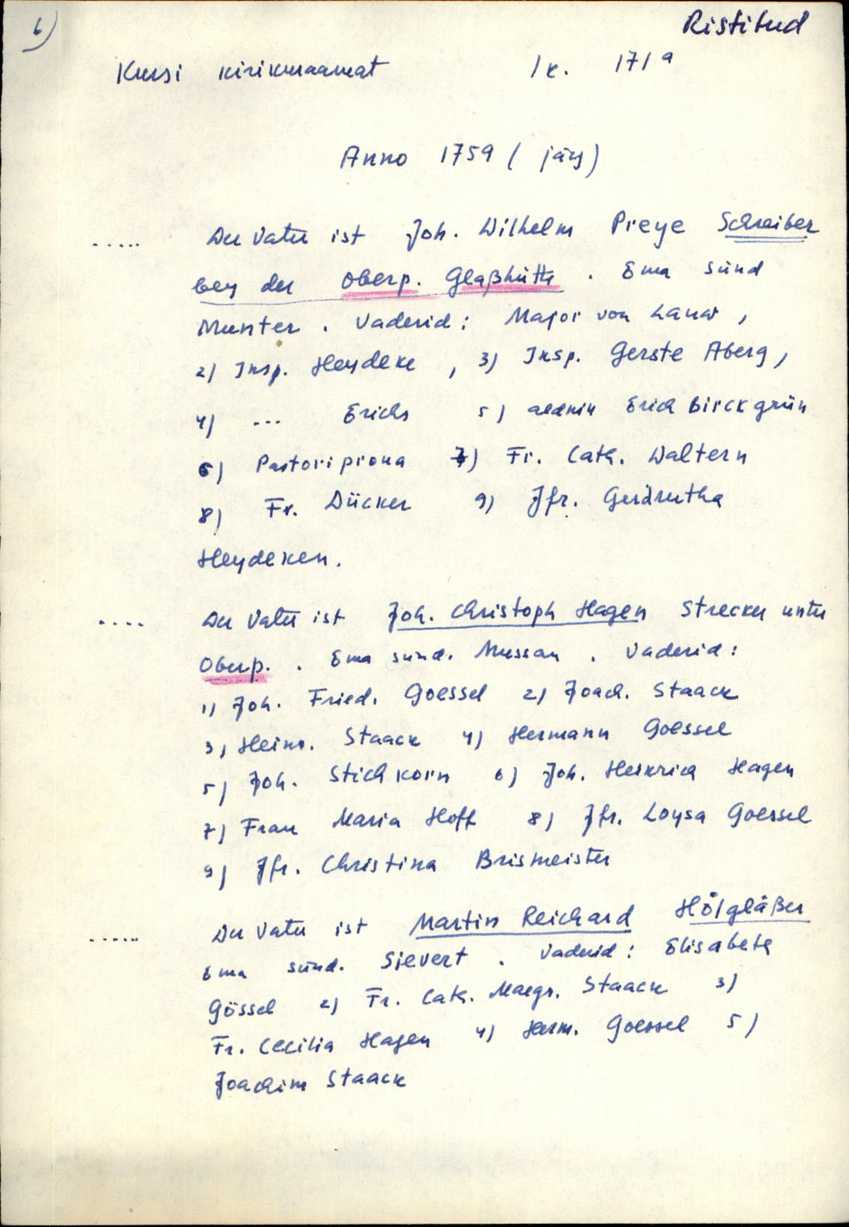 6)
Ristitud
Kursi kirikuraamat lk. 171a
Anno 1759 ( järg)
..... Der Vater ist Joh. Wilhelm Preye Schreiber
bey der Oberp. Glaßhütte . Ema sünd
Munter . Vaderid: Major von Lauw ,
2) Insp. Heydeke , 3) Insp. Gerste Aberg,
4) ... Erichs 5) Erich Birckgrün
6) Pastoriproua 7) Fr. Cath. Waltern
8) Fr. Dücker 9) Jfr. Gerdrutha
Heydeken.
.... Der Vater ist Joh. Christoph Hagen Strecker unter
Oberp. . Ema sünd. Mussau . Vaderid:
1) Joh. Fried. Goessel 2) Joach. Staack
3) Heinr. Staack 4) Hermann Goessel
5) Joh. Stichkorn 6) Joh. Heinrich Hagen
7) Frau Maria Hoff 8) Jfr. Loysa Goessel
9) Jfr. Christina Brismeister
...... Der Vater ist Martin Reichard Hölgläßer
Ema sünd. Sievert . Vaderid: Elisabeth
Gössel 2) Fr. Cath. Margr. Staack 3)
Fr. Cecilia Hagen 4) Herm. Goessel 5)
Joachim Staack